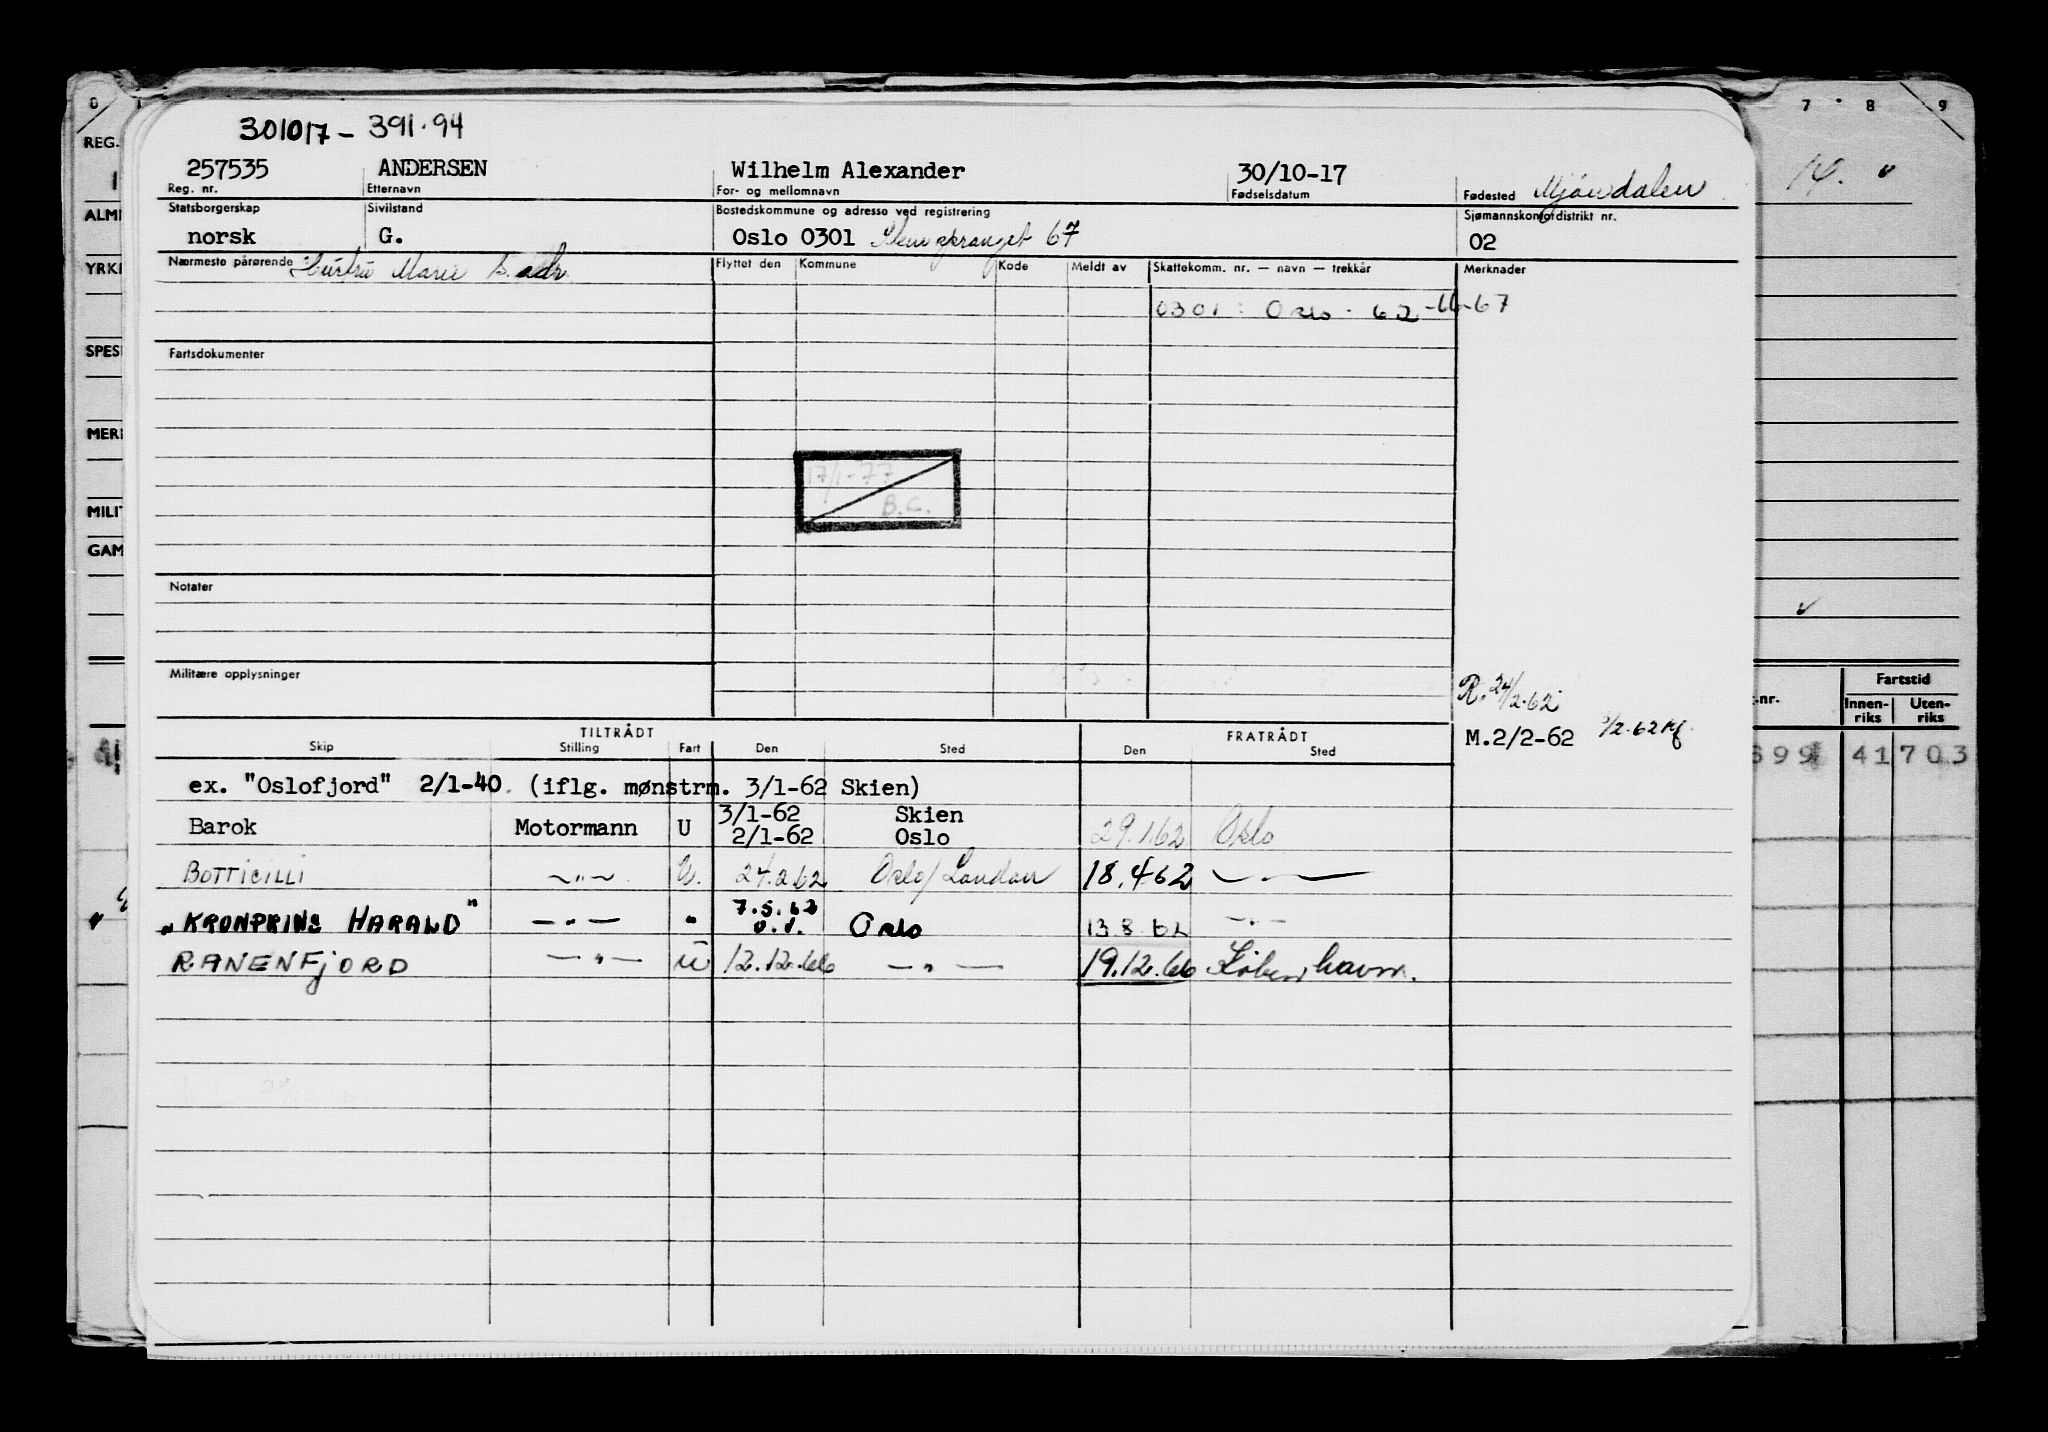 0 1 7 8 9
301017- 391.94
REG. 257535 ANDERSEN Wilhelm Alexander 30/10-17 14.
Reg. nr. Etternavn For- og mellomnavn Fødselsdatum Fødested Mjøndalen
ALM Statsborgerskap Sivilstand Bostedskommune og adresse ved registrering Sjømannskontordistrikt nr.
norsk G. Oslo 0301 67 02
YRK Nærmeste pårørende Hustru Marie s. adr. Flyttet den Kommune Kode Meldt av Skattekomm. nr. — navn — trekkår Merknader
0301 : Oslo . 62 -66-67
SPES Fartsdokumenter
MER
17/1-77
MILIT B.C.
GAM
Notater
Militære opplysninger Fartstid
R. 24/2.62
-nr. Innen-riks Uten-riks
TILTRÅDT FRATRÅDT M.2/2-62
Skip Stilling Fart Den Sted Den Sted
699 41 703
ex. "Oslofjord" 2/1-40. (iflg. mønstrm. 3/1-62 Skien)
3/1-62 Skien
Barok Motormann U 2/1-62 Oslo 29.1.62 Oslo
BOTTICILLI —"— U. 24.2.62 Oslo/London 18.4.62 —"—
"KRONPRINS HARALD" —"— " 7.5.62 Oslo 13.8.62 —"—
RANENFJORD —"— U 12.12.66 —"— 19.12.66 Københavnn.